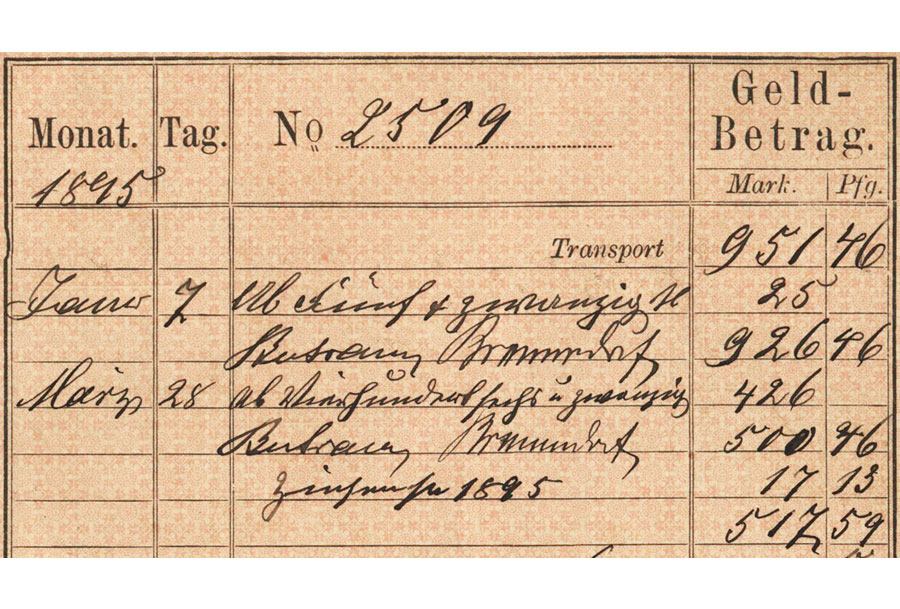 Monat. Tag. No 2509 Geld-
Betrag.
1895 Mark. Pfg.
Transport 951 46
Januar 7 Ab Fünf & zwanzig M 25
926 46
März 28 ab Vierhundertsechs u zwanzig 426
500 46
Zinsen für 1895 17 13
517 59